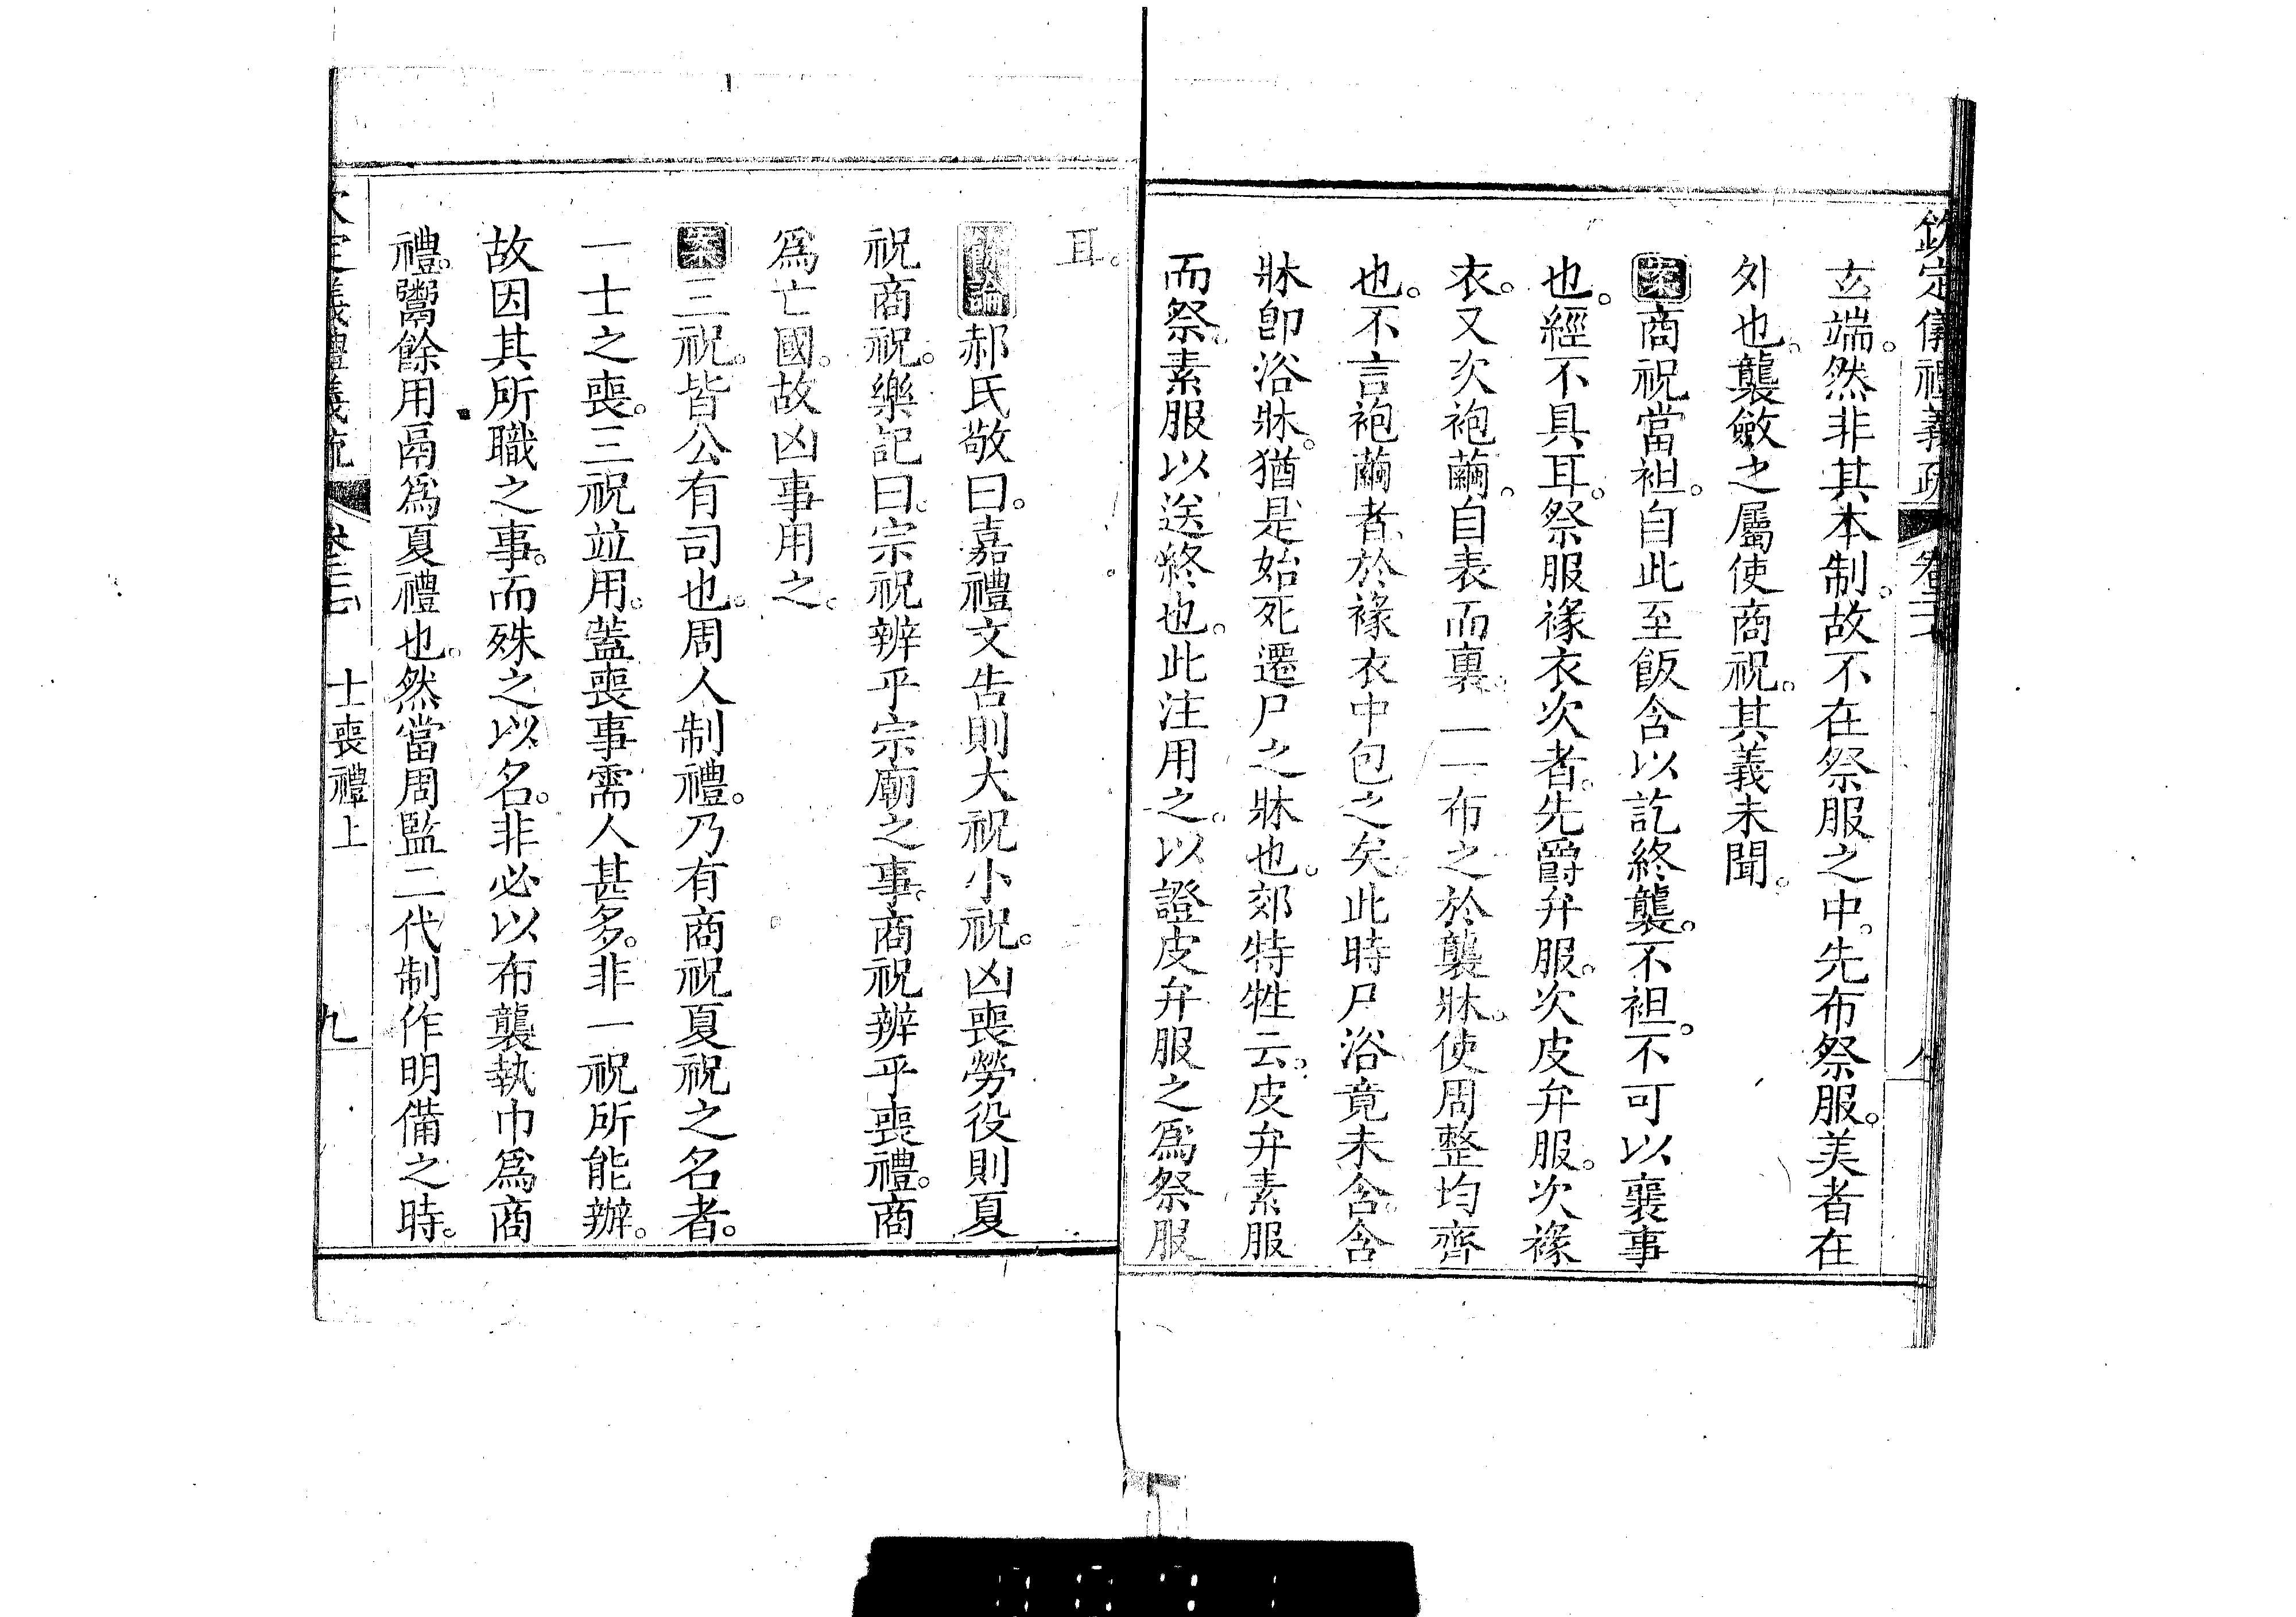 欽定儀禮義疏 卷二十七 八
玄端。然非其本制。故不在祭服之中。先布祭服。美者在
外也。襲斂之屬使商祝。其義未聞。
案商祝當袒。自此至飯含以訖終襲。不袒。不可以襄事
也。經不具耳。祭服褖衣次者。先爵弁服。次皮弁服。次褖
衣。又次袍繭。自表而裏。一一布之於襲牀。使周整均齊
也。不言袍繭者、於褖衣中包之矣。此時尸浴竟未含。含
牀卽浴牀。猶是始死遷尸之牀也。郊特牲云。皮弁素服
而祭。素服以送終也。此注用之。以證皮弁服之爲祭服
耳。
餘論郝氏敬曰。嘉禮文告則大祝小祝。凶喪勞役則夏
祝商祝。樂記曰。宗祝辨乎宗廟之事。商祝辨乎喪禮。商
爲亡國。故凶事用之。
案三祝。皆公有司也。周人制禮。乃有商祝夏祝之名者。
一士之喪。三祝竝用。蓋喪事需人甚多。非一祝所能辦。
故因其所職之事。而殊之以名。非必以布襲執巾爲商
禮。鬻餘用鬲爲夏禮也。然當周監二代制作明備之時。
欽定儀禮義疏 士喪禮上 九